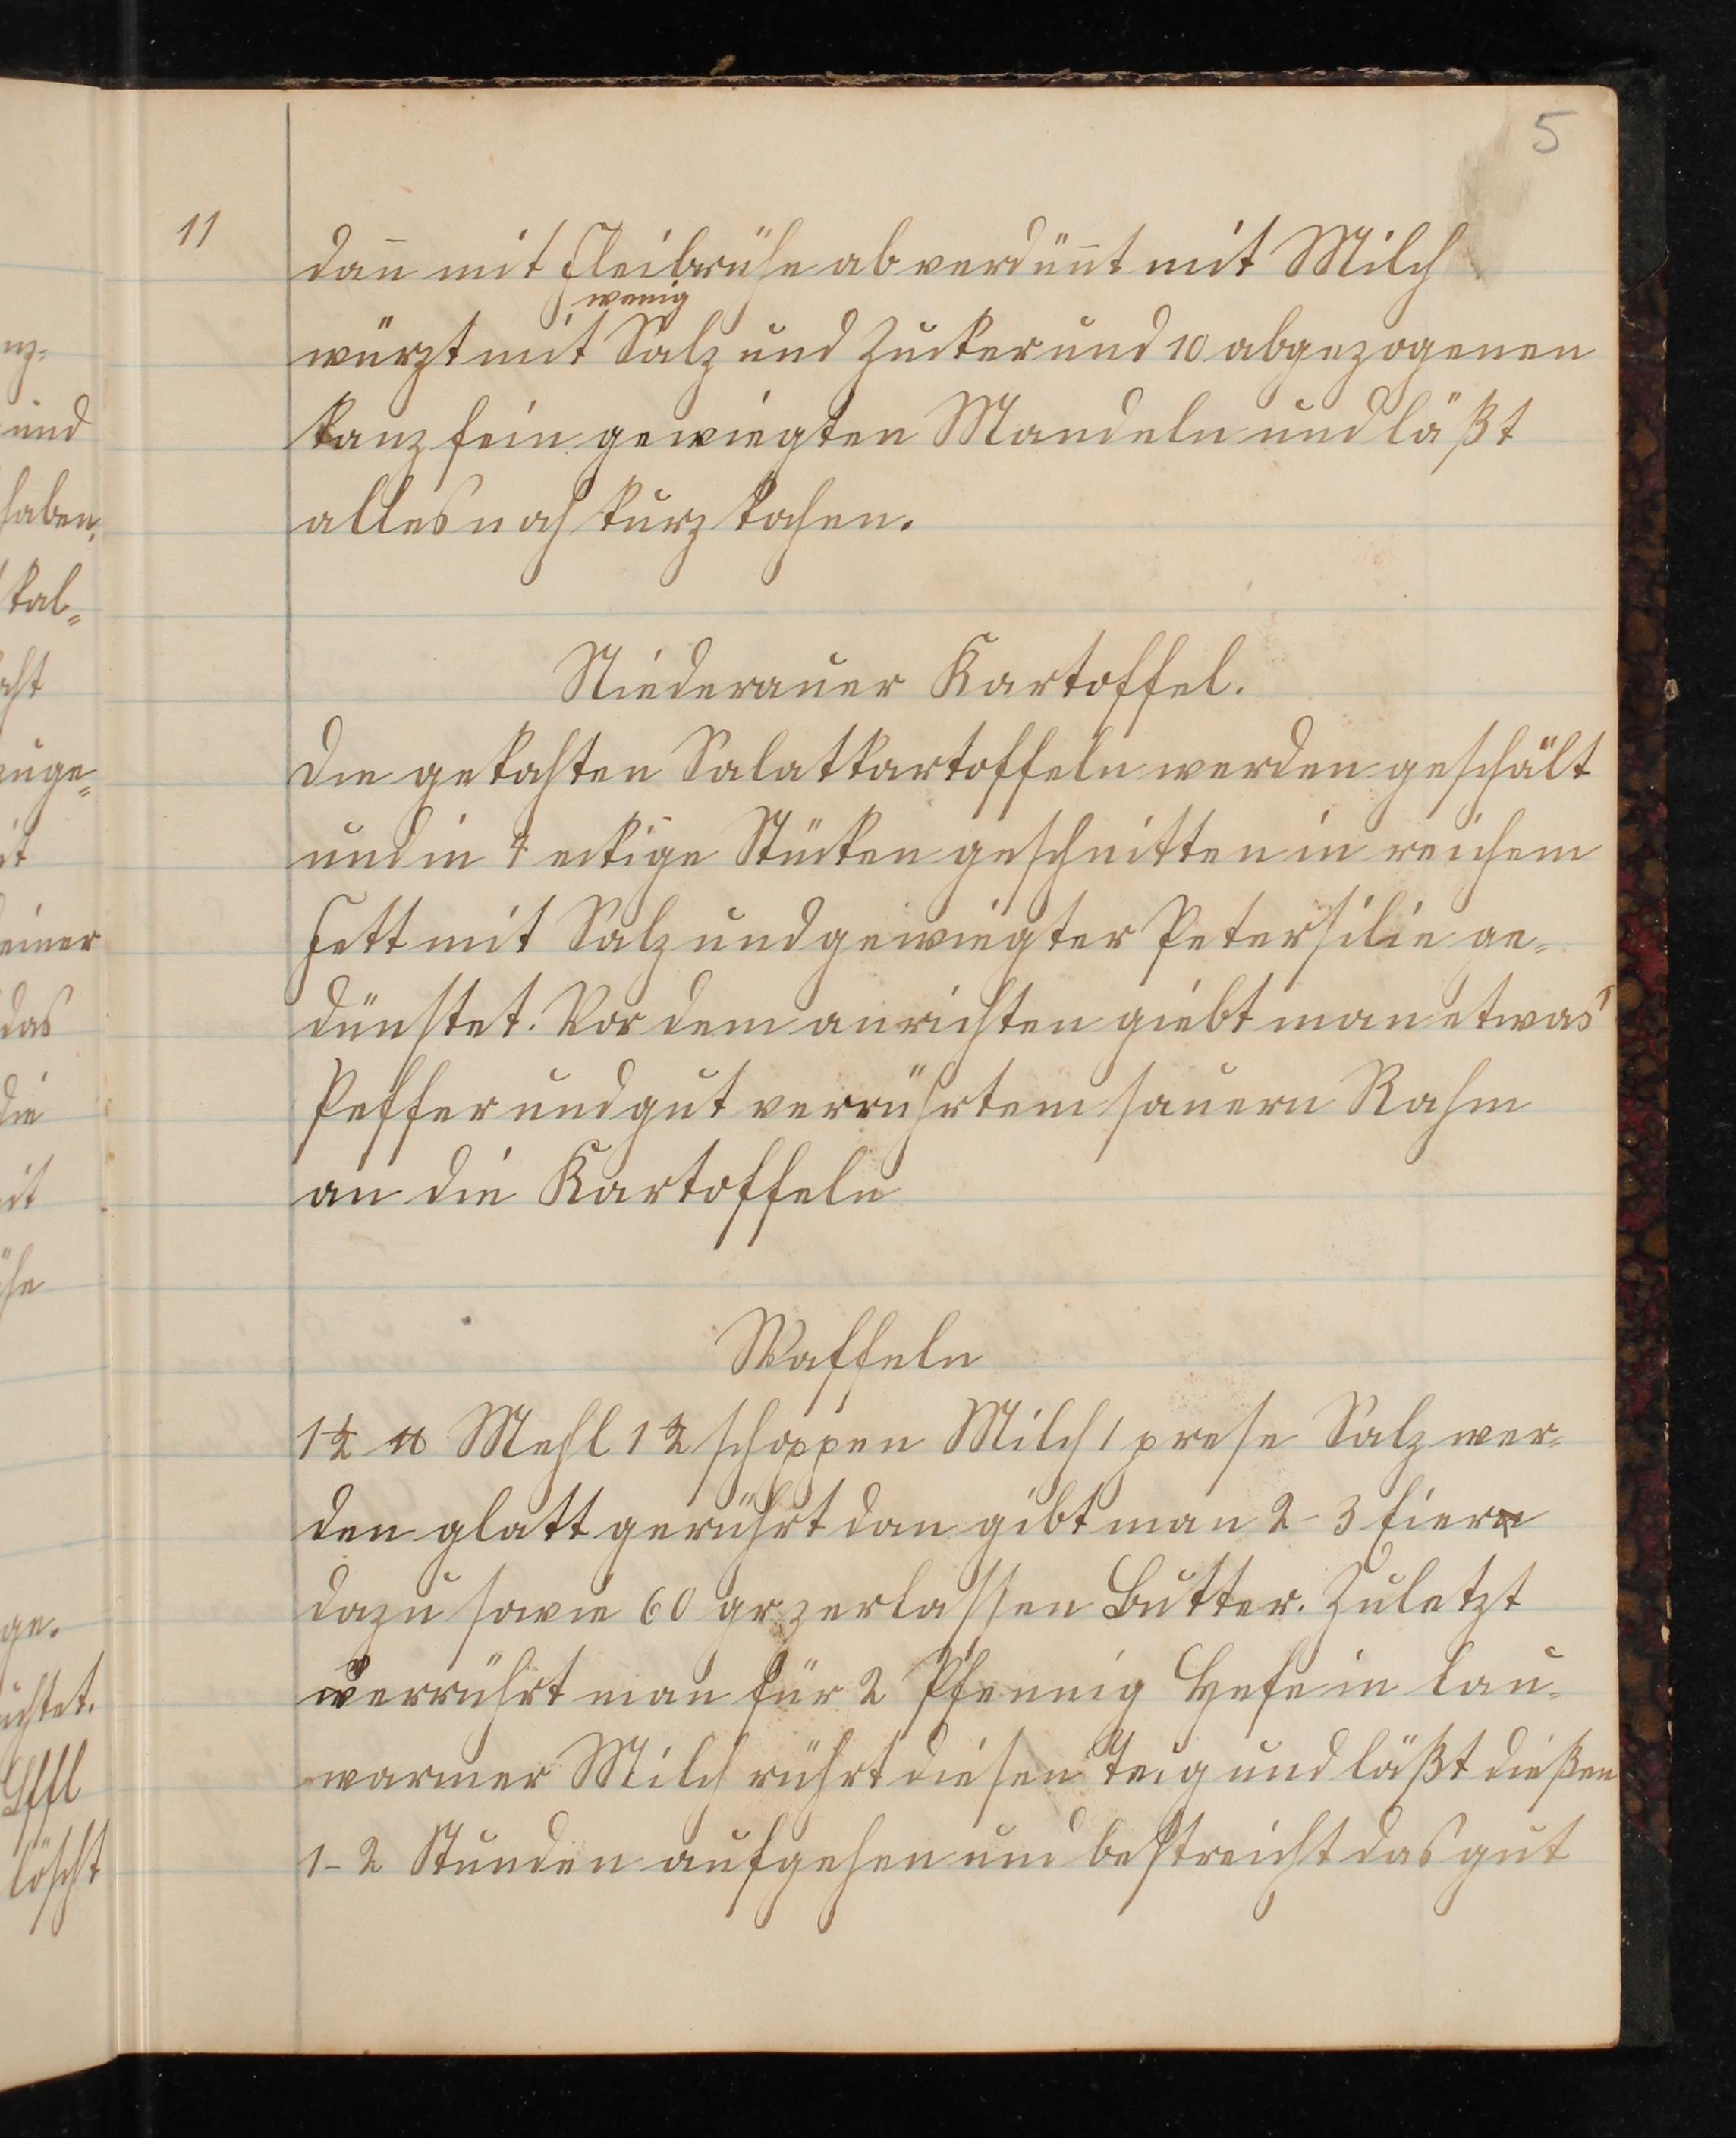 5
11
dan̄ mit Fleibrühe ab verdün̄t mit Milch
wenig
würzt mit Salz und Zucker und 10 abgezogenen
kanz fein gewiegten Mandeln und läßt
alles noch kurz kochen.
Niederauer Kartoffel.
die gekochten Salatkartoffeln werden geschält
und in 4 eckige Stücken geschnitten in reichem
Fett mit Salz und gewiegter Petersilie ge-
dünstet. Vor dem anrichten giebt man etwas
Peffer und gut verrührtem sauern Rahm
an die Kartoffeln
Waffeln
1½ ℔ Mehl 1½ schoppen Milch 1 prese Salz wer-
den glatt gerührt dan gibt man 2-3 Eier
dazu sowie 60 gr zerlassen Butter. Zuletzt
verrührt man für 2 Pfennig Hefe in lau-
warmer Milch rührt diesen Teig und läßt dießen
1-2 Stunden aufgehen und bestreicht das gut
nz-
und
haben,
kal-
cht
zuge-
it
einer
das
die
it
ühe
ge.
ichtet.
Löffl
löscht